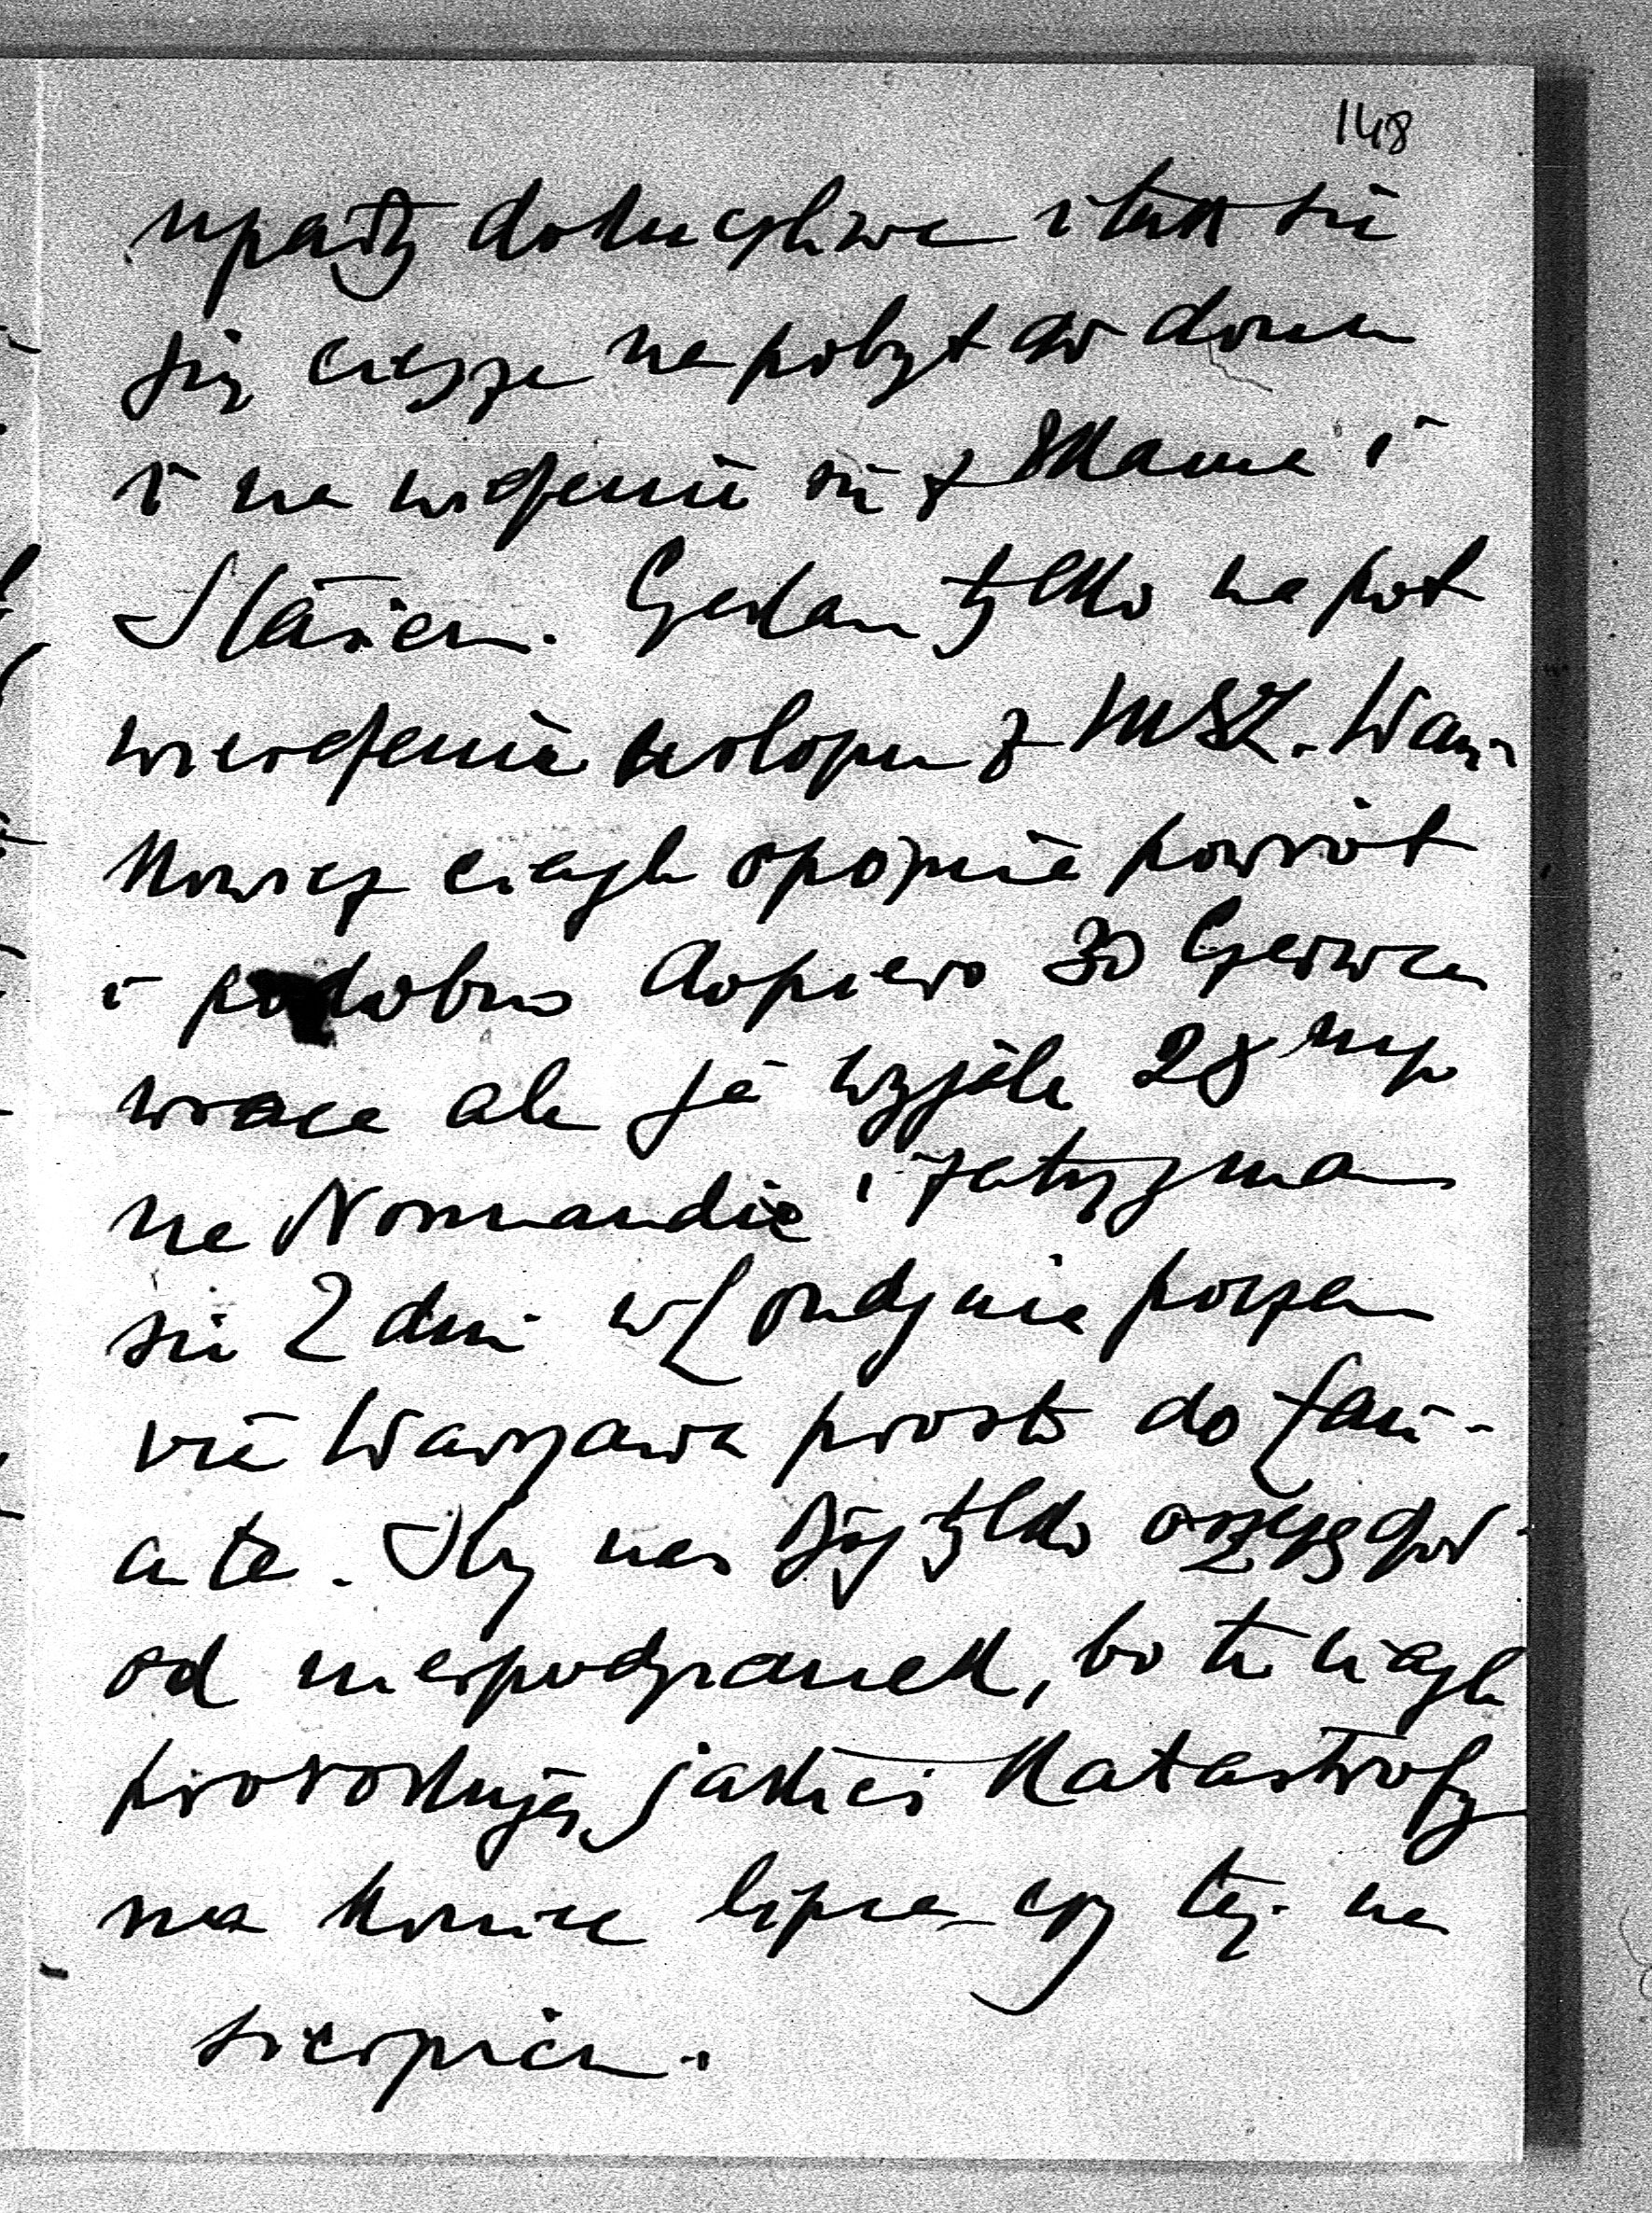 148
upały dokuczliwe i tak się
się cieszę na pobyt w domu
i na widzenie się z Mamą i
Stasiem. Czekam tylko na pot
wierdzenie urlopu z MSZ. Wań-
kowicz ciągle opóźnia powrót
i podobno dopiero 30 Czerwca
wraca ale ja wyjadę 28 maja
na Normandie i zatrzymam
się 2 dni w Londynie poczem
via Warszawa prosto do Łań-
cuta. Aby nas Bóg tylko
od niespodzianek, bo tu ciągle
prorokują jakieś katastrofy
na koniec lipca czy też na
sierpień.